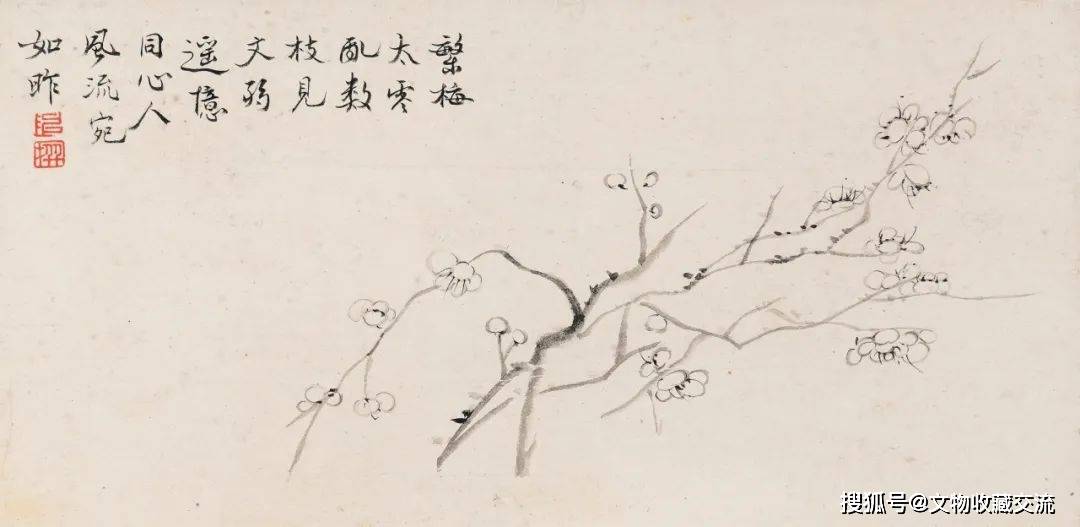 繁梅
太零
亂数
枝見
文弱
遥憶
同心人
風流宛
如昨
搜狐号@文物收藏交流